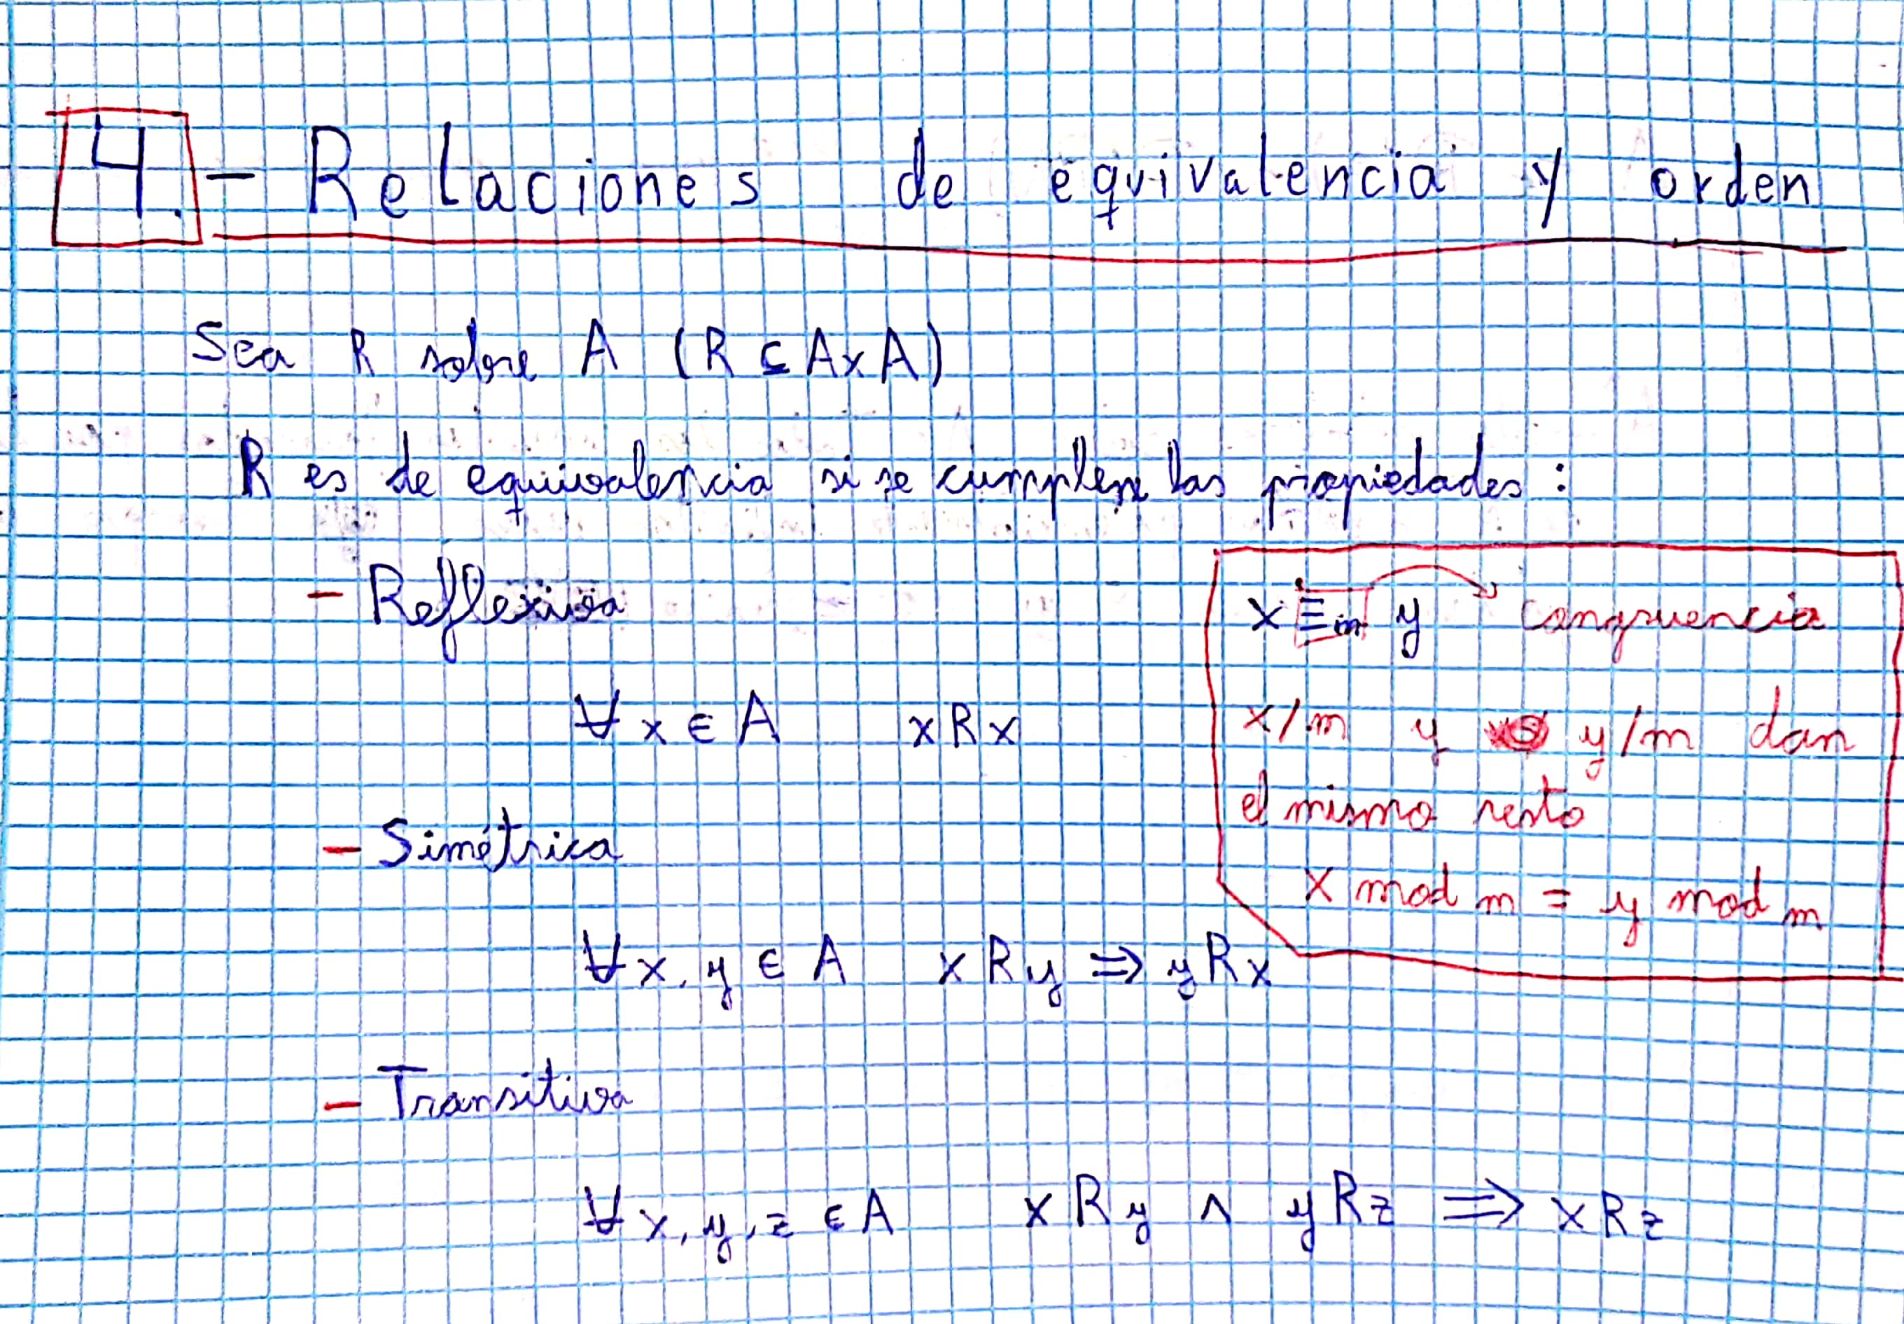 4.- Relaciones de equivalencia y orden
Sea R sobre A (R ⊆ A x A)
R es de equivalencia si se cumplen las propiedades:
- Reflexiva
∀ x ∈ A x R x
- Simétrica
∀ x, y ∈ A x R y ⇒ y R x
- Transitiva
∀ x, y, z ∈ A x R y ∧ y R z ⇒ x R z
x ≡m y congruencia
x/m y y/m dan
el mismo resto
x mod m = y mod m